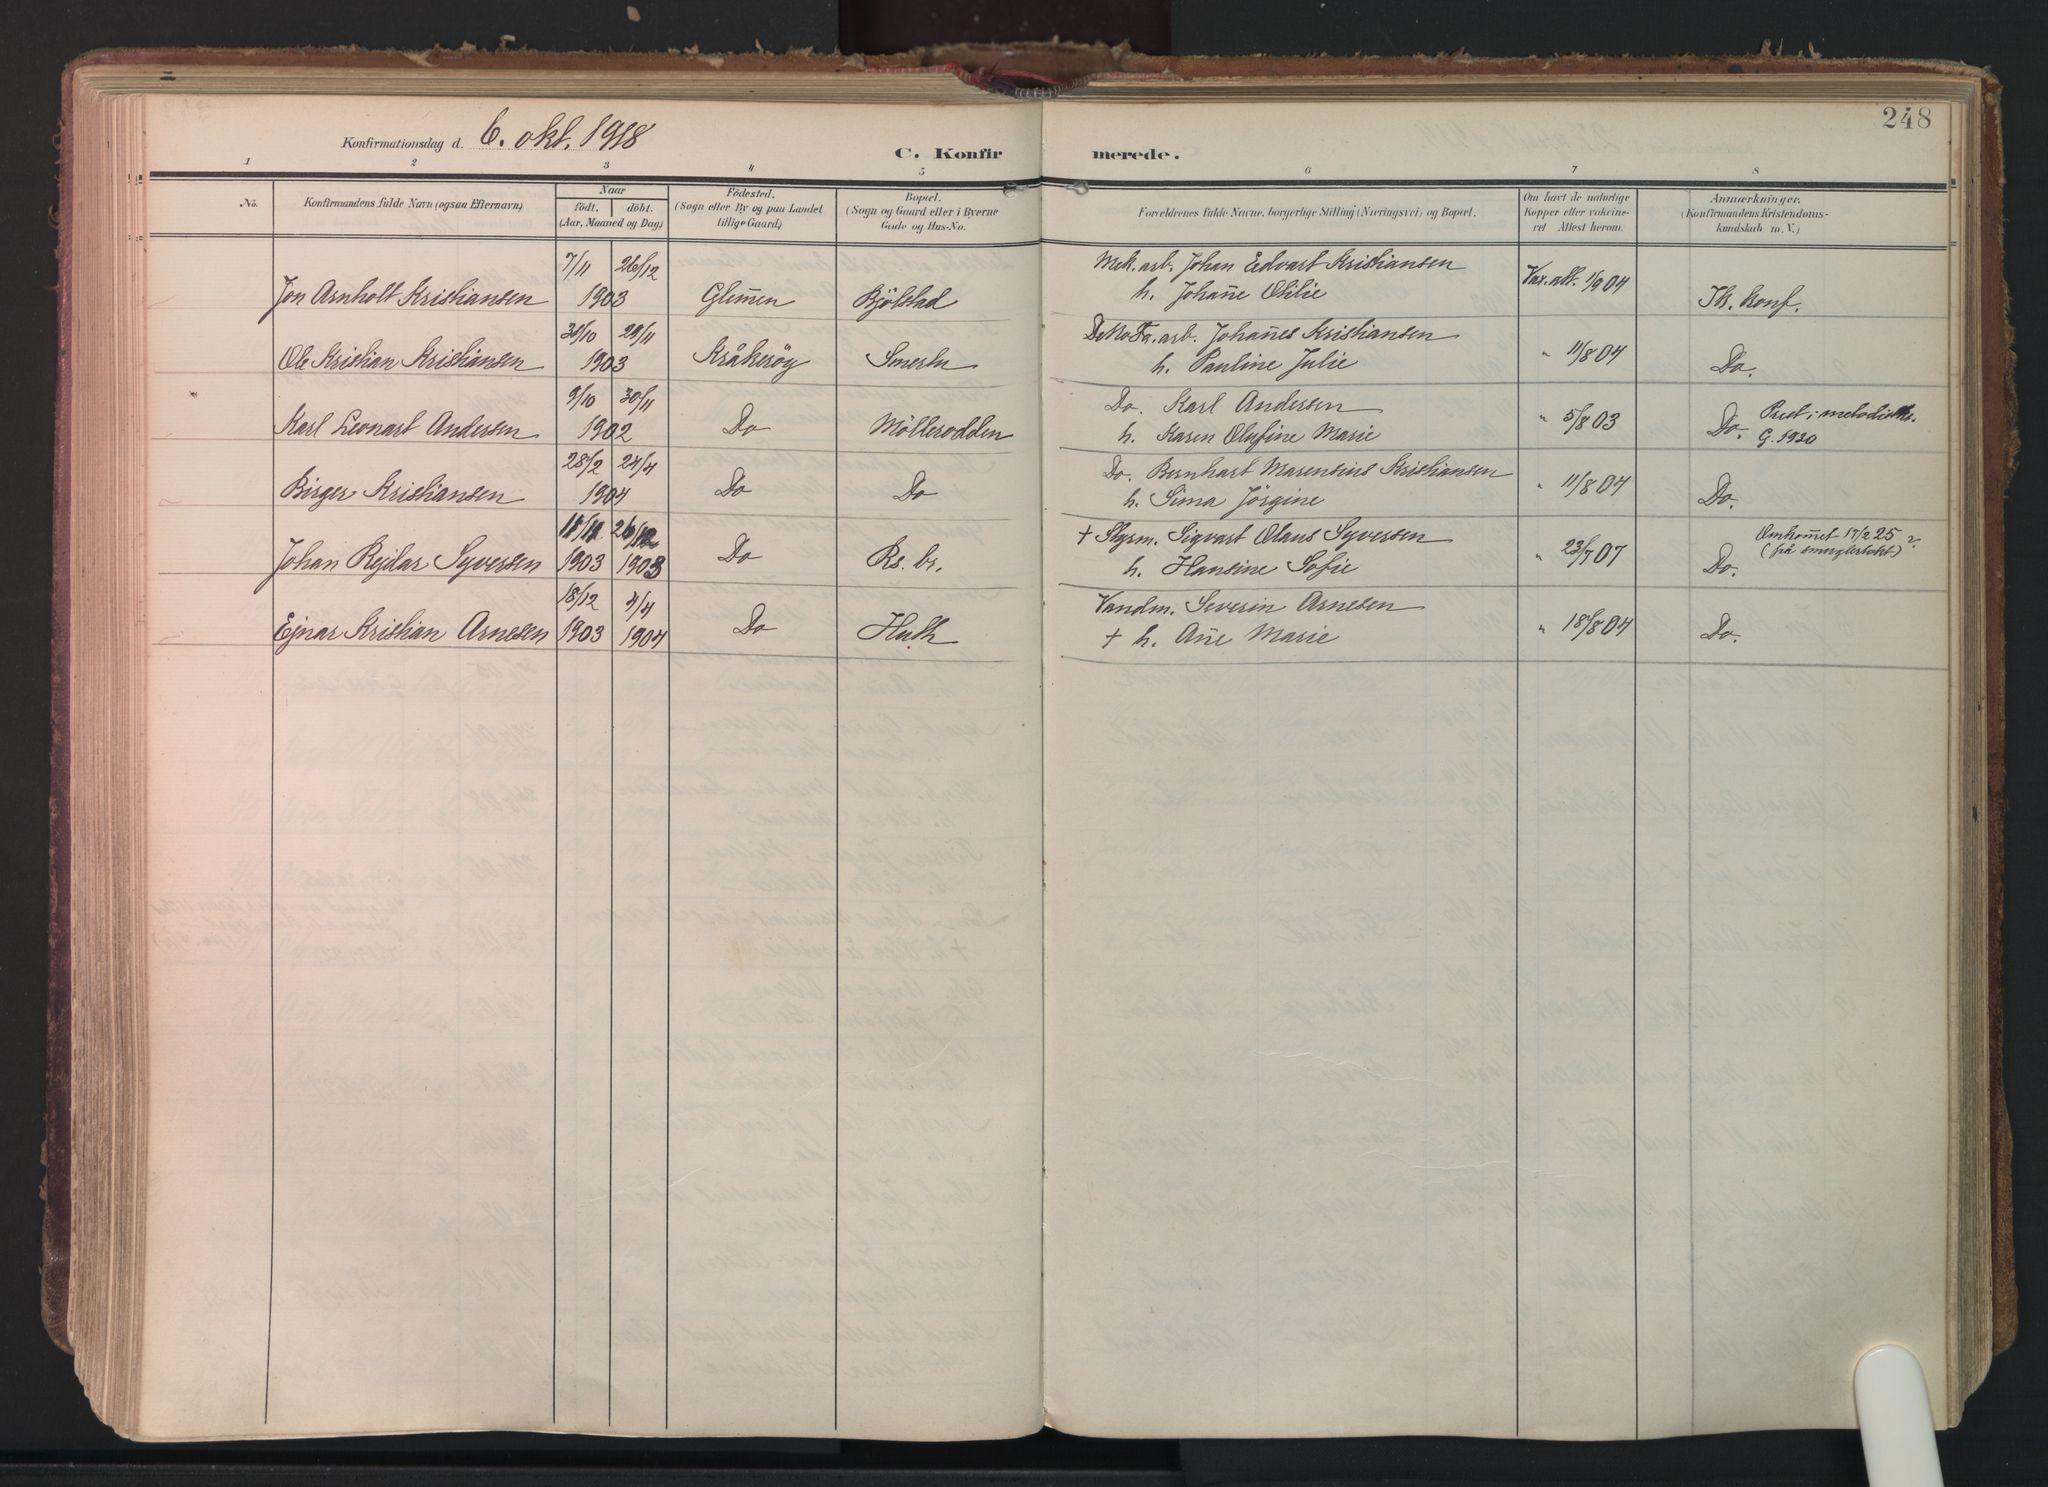 248
Konfirmationsdag d. 6. okt. 1918
C. Konfirmerede.
1 2 3 4 5 6 7 8
No.
Konfirmandens fulde Navn (ogsaa Efternavn).
Naar
født. døbt.
(Aar, Maaned og Dag)
Fødested.
(Sogn eller By og paa Landet
tillige Gaard.)
Bopæl.
(Sogn og Gaard eller i Byerne
Gade og Hus-No.
Forældrenes fulde Navne, borgerlige Stilling (Næringsvei) og Bopæl.
Om havt de naturlige
Kopper eller vakcine-
ret Attest herom.
Anmærkninger.
(Konfirmandens Kristendoms-
kundskab m. V.)
7/11 26/12 Mek. arb. Johan Edvart Kristiansen
Jon Arnholt Kristiansen 1903 Glemen Bjölstad h. Johañe Otilie Vax. att. 1/9 04 Ik. konf.
30/10 29/11 arb. Johañes Kristiansen
Ole Kristian Kristiansen 1903 Kråkeröy Smertu h. Pauline Julie " 11/8 04 Do.
9/10 30/11 Do. Karl Andersen
Karl Leonart Andersen 1902 Do Möllerodden h. Karen Olufine Marie " 5/8 03 Do. Prest i
G. 1920
28/2 24/4 Do. Bernhart Marensius Kristiansen
Birger Kristiansen 1904 Do Do h. Sima Jörgine " 11/8 04 Do.
26/12 + Styrm. Sigvart Olaus Syversen Omkom̃et 17/2 25?
Johan Rejdar Syversen 1903 1903 Do Rs. br. h. Hansine Sofie " 23/7 07 Do. (på smuglertokt)
18/12 4/4 Vandm. Severin Arnesen
Ejnar Kristian Arnesen 1903 1904 Do Huth + h. Añe Marie " 18/8 04 Do.